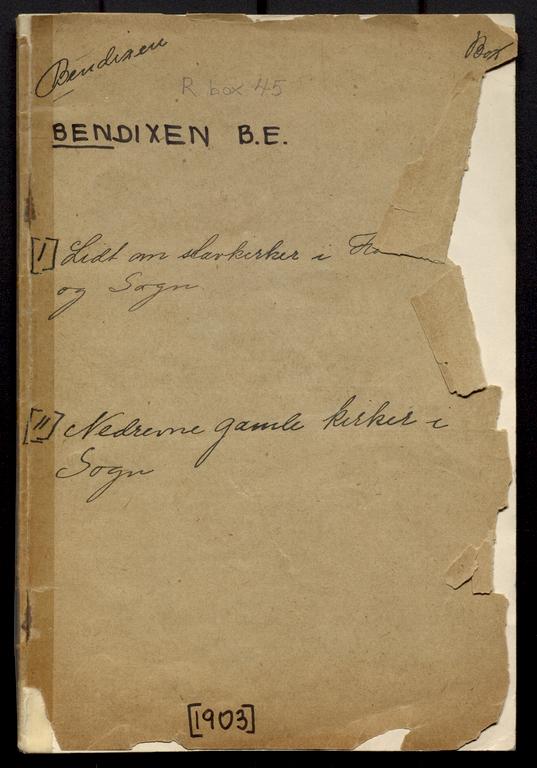 Bendixen
Box
R box 45
BENDIXEN B.E.
[I] Lidt om stavkirker i
og Sogn
[II] Nedrevne gamle kirker i
Sogn
[1903]